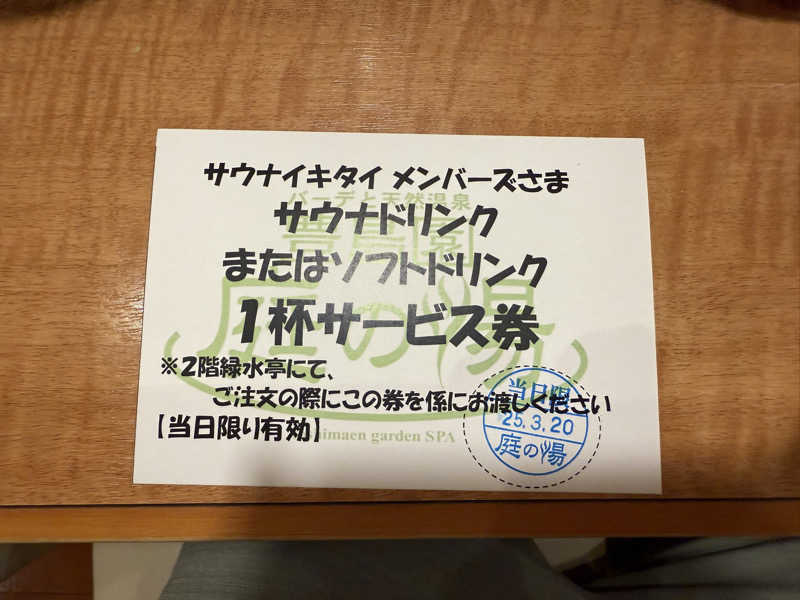 サウナイキタイ メンバーズさま
バーデと天然温泉
サウナドリンク
豊島園
またはソフトドリンク
庭の湯
1杯サービス券
※2階緑水亭にて、
ご注文の際にこの券を係にお渡しください
【当日限り有効】
imaen garden SPA
当日限
25.3.20
庭の湯